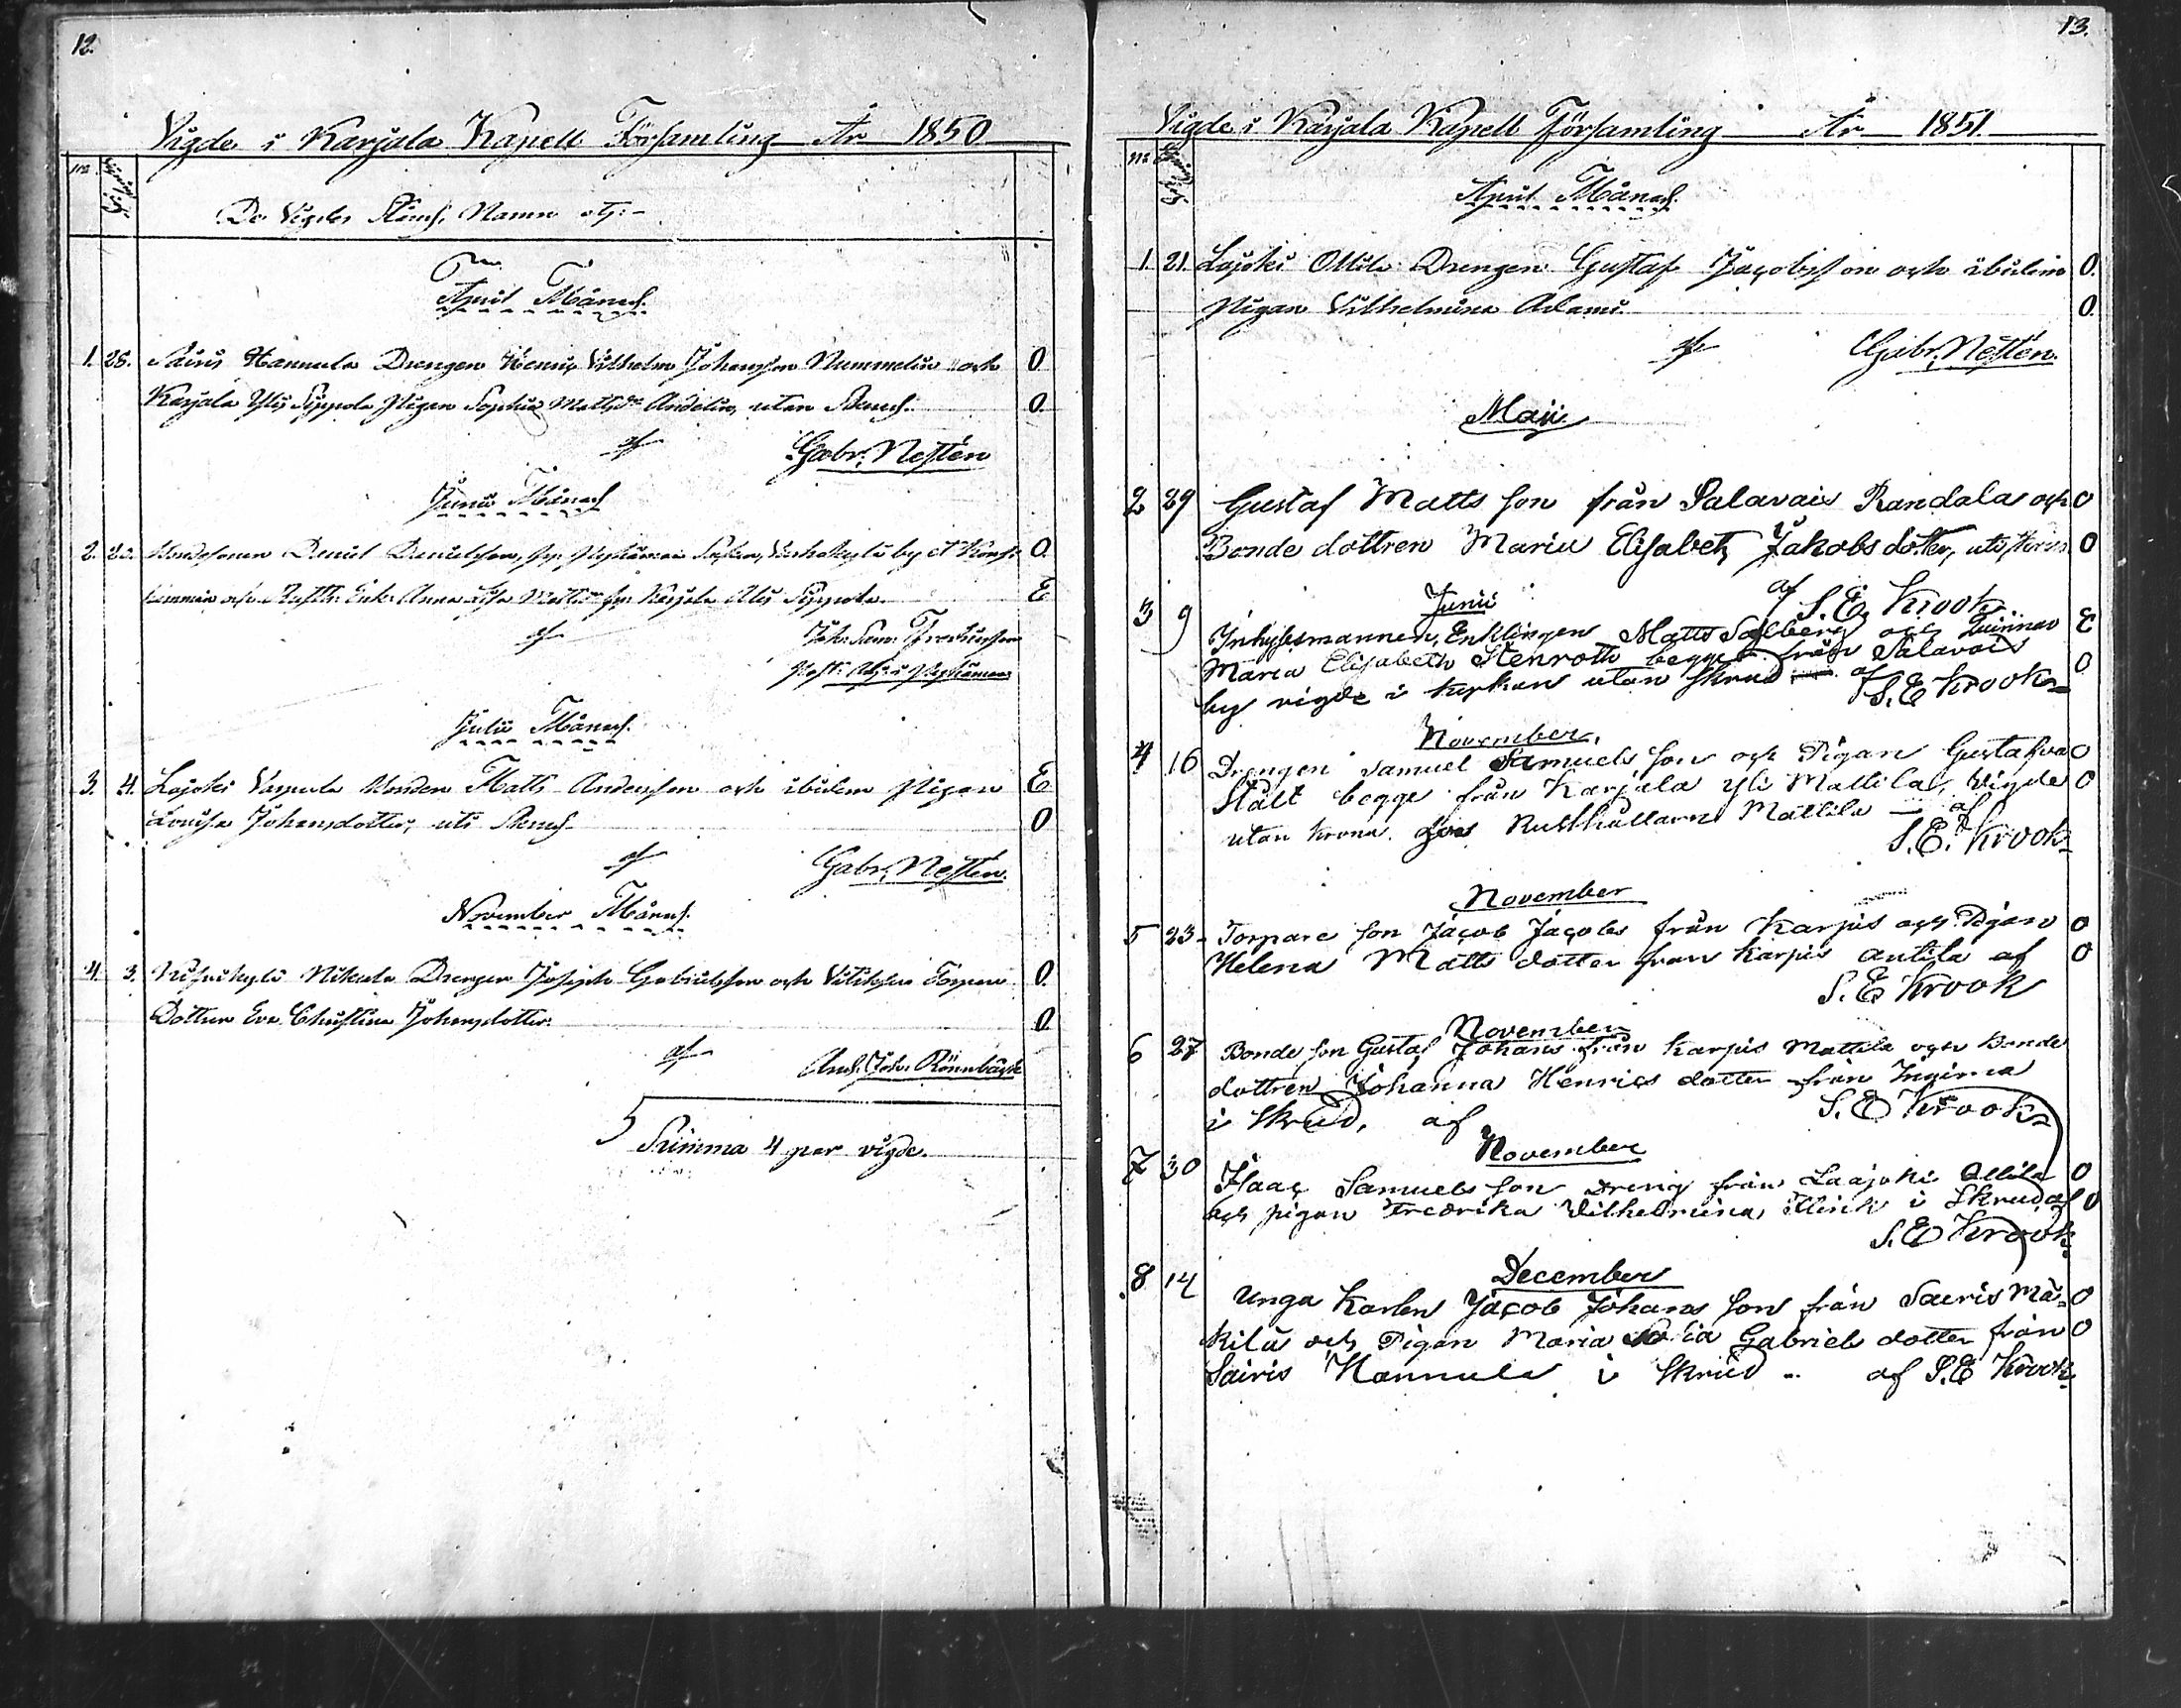 12.
Vigde i Karjala Kapell Församling År 1850
De Vigdes Stånd, Namn
April Månad.
1. 28. Sairis Hannula Drengen Henric Vilhelm Johansson Nummelin och O
Karjala Yli Sippola Pigan Sophia Matts Andelin, utan O.
af Gabr. Nestén
Junii Månad
2. Daniel Danielsson, by O.
och Enk. Anna Lisa Karjala Alis Sippola E
af
Julii Månad.
3. 4. Lajoki Bonden Matts Andersson och ibidem Pigan E
Lovisa Johansdotter, uti O
af Gabr. Nestén.
November Månad.
4. 3. Nikula Drengen Joseph Gabrielsson och O.
Dottren Eva Christina Johansdotter. O
af And. Joh. Rönnbäck
Summa 4 par vigde.
13.
Vigde i Karjala Kapell Församling År 1851
April Månad.
1. 21. Lajoki Ollila Drengen Gustaf Jacobsson och ibidem O.
Pigan Vilhelmina Adams. O.
af Gabr. Nestén.
Maii
2 29 Gustaf Matts son från Salavais Randala och O
Bonde dottren Maria Elisabeth Jakobs dotter, O
af S. E. Krook
Junii
3 9 Inhyhsmannen, Enklingen Matts Salberg och Quinnan E
Maria Elisabeth Stenroth begge från Salavais O
by vigde i kyrkan utan skrud af
S. E Krook
November.
4 16 Drengen Samuel Samuels son och Pigan Gustafva O
Stålt begge från Karjala yli Mattila, vigde O
utan krona. hos Rusthållarn Mattila — af
S. E. Krook
November
5 23 Torpare son Jacob Jacobs från Karjis och Pigan O
Helena Matts dotter från Karjis Antila af O
S. E Krook
November
6 27 Bonde son Gustaf Johans från Karjis Mattila och Bonde
dottren Johanna Henrics dotter från
i skrud. af S. E Krook
November
7 30 Isaac Samuels son Dreng från Laajoki Ollila O
och pigan Fredrika Vilhelmina i Skrud af O
S. E Krook
December
8 14 Unga Karlen Jacob Johans son från Sairis Mä- O
kilä och Pigan Maria Gabriels dotter från O
Sairis Hannula i skrud af S. E Krook